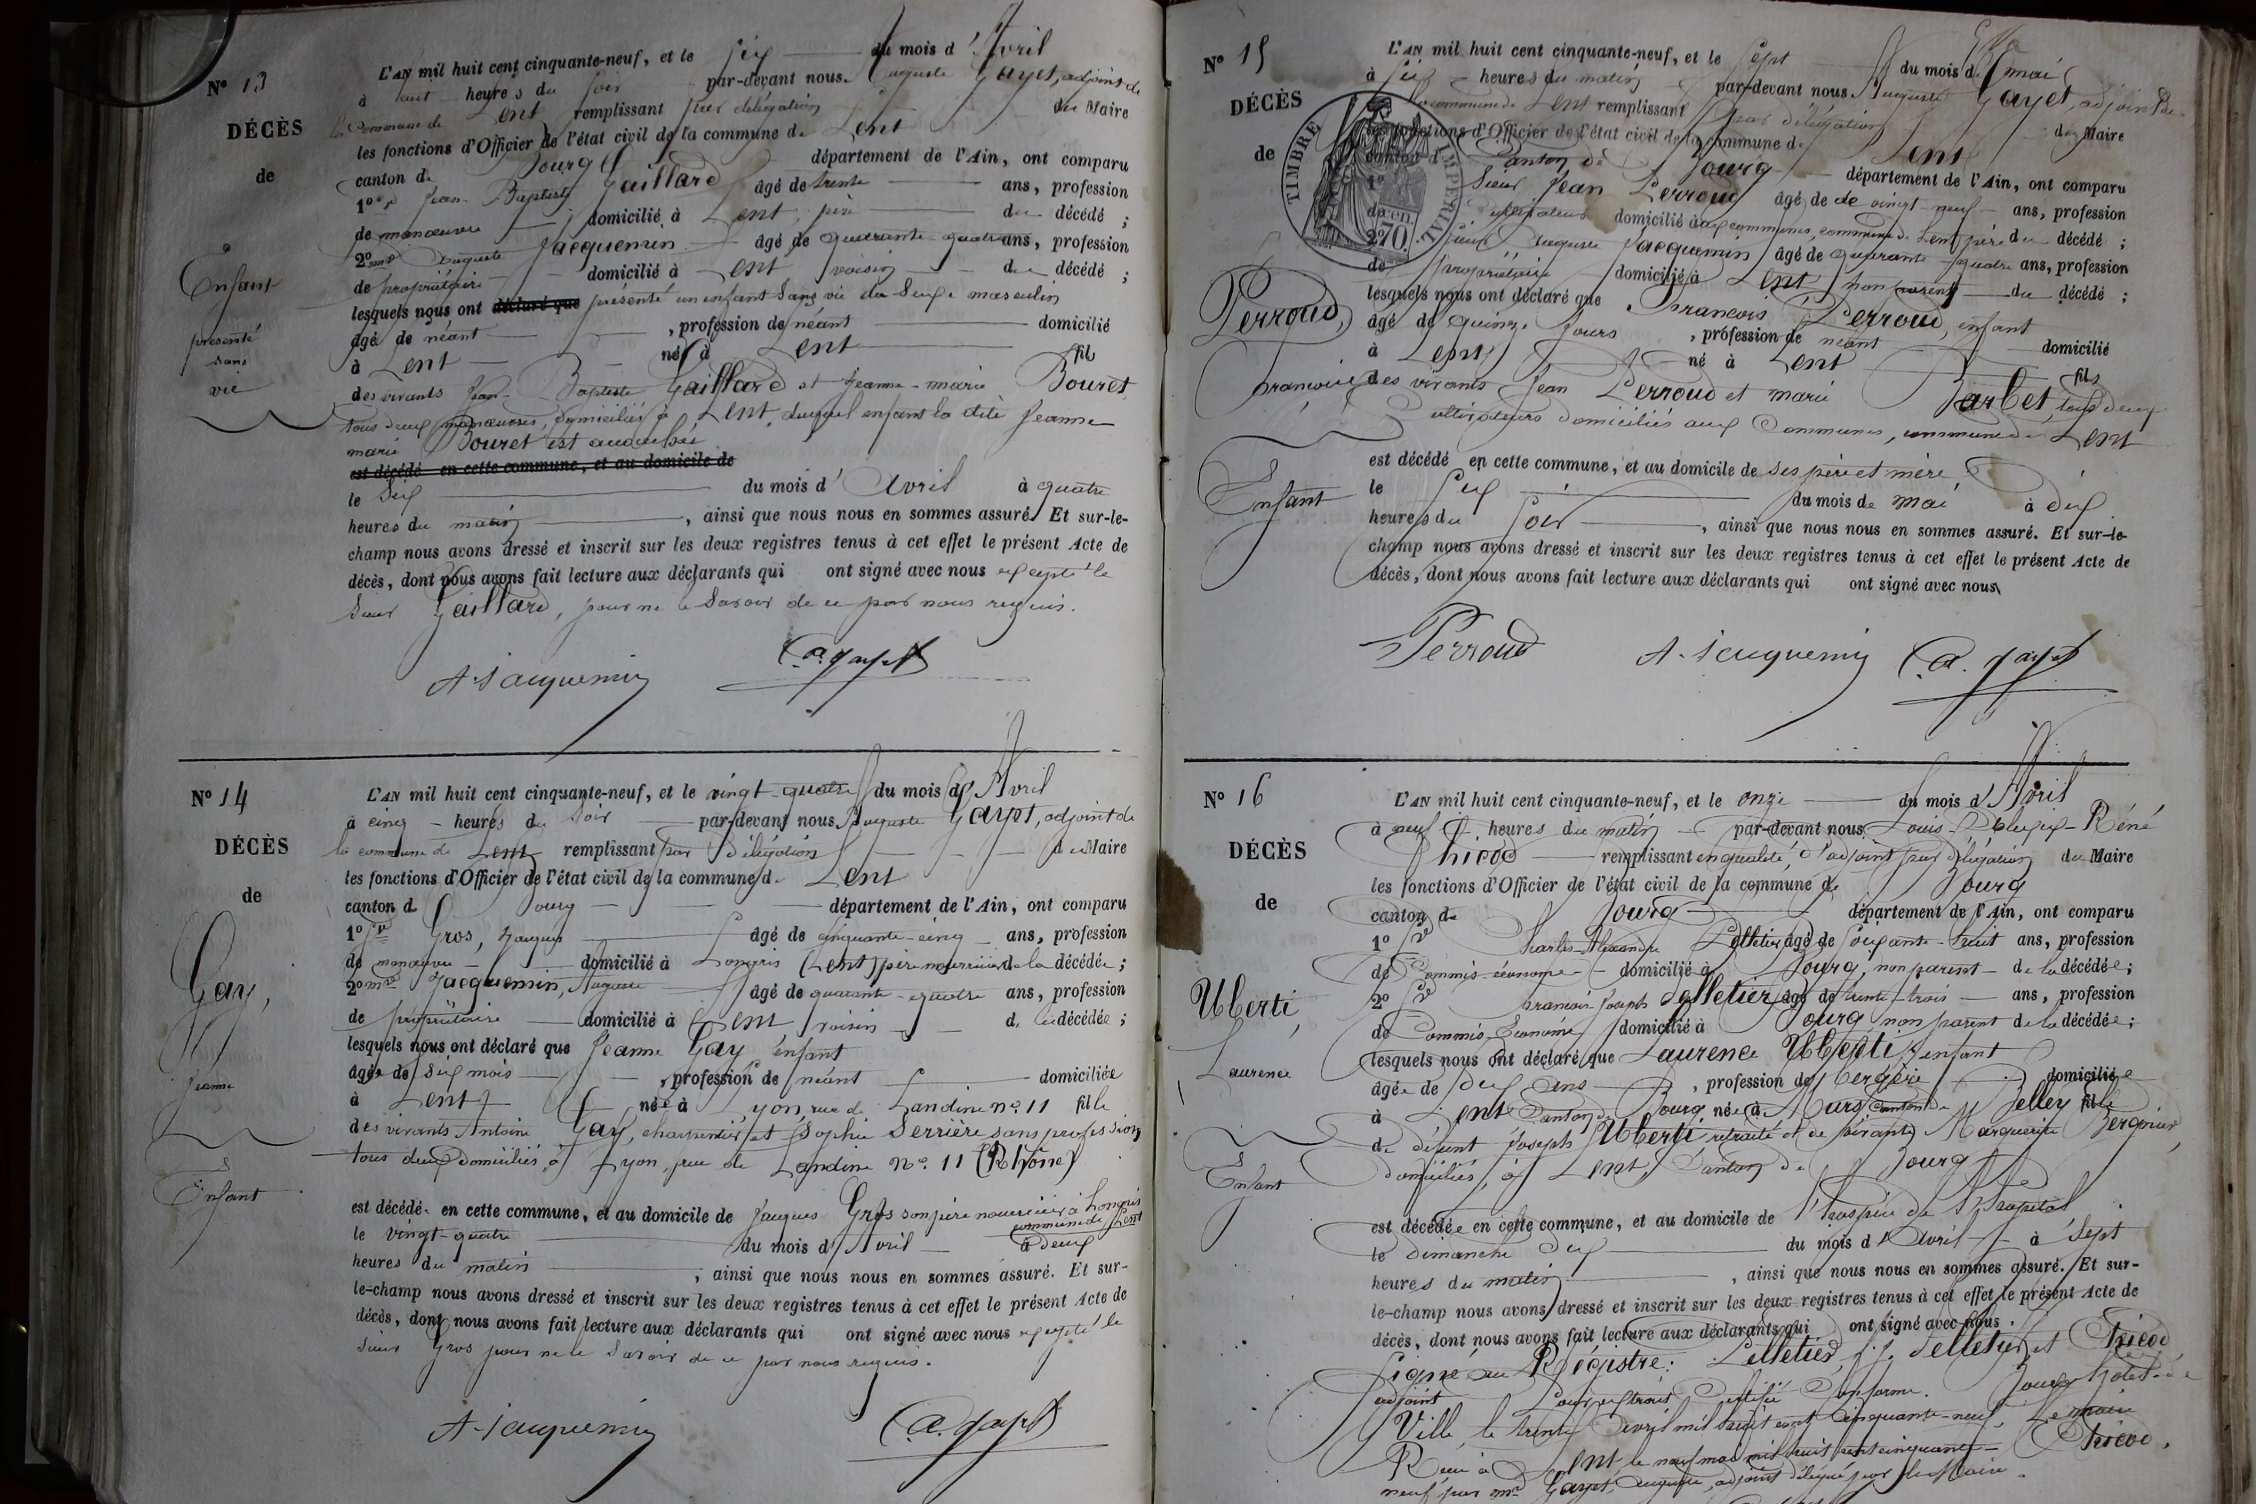 N° 13
DÉCÈS
de
Enfant
présenté
sans
vie
L'AN mil huit cent cinquante-neuf, et le six du mois d'Avril
à huit heures du soir par-devant nous Auguste Gayet, adjoint de
la commune de Lent remplissant par délégation du Maire
les fonctions d'Officier de l'état civil de la commune de Lent
canton de Bourg département de l'Ain, ont comparu
1° Jean-Baptiste Gaillard âgé de trente ans, profession
de manœuvre domicilié à Lent, père du décédé ;
2° Auguste Jacquemin âgé de quarante-quatre ans, profession
de propriétaire domicilié à Lent voisin du décédé ;
lesquels nous ont déclaré que présenté un enfant sans vie du sexe masculin
âgé de néant, profession de néant domicilié
à Lent né à Lent fils
des vivants Jean-Baptiste Gaillard et Jeanne-marie Bouret
tous deux manœuvres, domiciliés à Lent, duquel enfant la dite Jeanne
marie Bouret est accouchée
est décédé en cette commune, et au domicile de
le six du mois d'Avril à quatre
heures du matin, ainsi que nous nous en sommes assuré. Et sur-le-
champ nous avons dressé et inscrit sur les deux registres tenus à cet effet le présent Acte de
décès, dont nous avons fait lecture aux déclarants qui ont signé avec nous excepté le
sieur Gaillard, pour ne le savoir de ce par nous requis.
A. Jacquemin
A. Gayet
N° 14
DÉCÈS
de
Gay,
Jeanne
Enfant
L'AN mil huit cent cinquante-neuf, et le vingt-quatre du mois d'Avril
à cinq heures du soir par-devant nous Auguste Gayet, adjoint de
la commune de Lent remplissant par délégation du Maire
les fonctions d'Officier de l'état civil de la commune de Lent
canton de Bourg département de l'Ain, ont comparu
1° Sr Gros, Jacques âgé de cinquante-cinq ans, profession
de manœuvre domicilié à Longris (Lent) père nourricier de la décédée ;
2° Jacquemin, Auguste âgé de quarante-quatre ans, profession
de propriétaire domicilié à Lent voisin de la décédée ;
lesquels nous ont déclaré que Jeanne Gay enfant
âgée de six mois, profession de néant domiciliée
à Lent née à Lyon rue de Landine n° 11 fille
des vivants Antoine Gay, charpentier et Sophie Serrière sans profession
tous deux domiciliés à Lyon, rue de Landine N° 11 (Rhône)
est décédée en cette commune, et au domicile de Jacques Gros son père nourricier à Longris
commune de Lent
le vingt-quatre du mois d'Avril à deux
heures du matin, ainsi que nous nous en sommes assuré. Et sur-
le-champ nous avons dressé et inscrit sur les deux registres tenus à cet effet le présent Acte de
décès, dont nous avons fait lecture aux déclarants qui ont signé avec nous excepté le
sieur Gros pour ne le savoir de ce par nous requis.
A. Jacquemin
A. Gayet
N° 15
DÉCÈS
de
Perroud,
François
Enfant
TIMBRE IMPÉRIAL
L'AN mil huit cent cinquante-neuf, et le sept du mois de mai
à six heures du matin par-devant nous Auguste Gayet, adjoint de
la commune de Lent remplissant par délégation du Maire
les fonctions d'Officier de l'état civil de la commune de Lent
canton de Bourg département de l'Ain, ont comparu
1° Sieur Jean Perroud âgé de vingt-neuf ans, profession
de cultivateur domicilié aux communes, commune de Lent père du décédé ;
2° Sieur Auguste Jacquemin âgé de quarante-quatre ans, profession
de propriétaire domicilié à Lent non parent du décédé ;
lesquels nous ont déclaré que François Perroud, enfant
âgé de quinze jours, profession de néant domicilié
à Lent né à Lent fils
des vivants Jean Perroud et marie Barbet, tous deux
cultivateurs domiciliés aux Communes, commune de Lent
est décédé en cette commune, et au domicile de ses père et mère,
le six du mois de mai à dix
heures du soir, ainsi que nous nous en sommes assuré. Et sur-le-
champ nous avons dressé et inscrit sur les deux registres tenus à cet effet le présent Acte de
décès, dont nous avons fait lecture aux déclarants qui ont signé avec nous
Perroud
A. Jacquemin
A. Gayet
N° 16
DÉCÈS
de
Uberti,
Laurence
Enfant
L'AN mil huit cent cinquante-neuf, et le onze du mois d'Avril
à neuf heures du matin par-devant nous Louis-Réné
Chicod remplissant en qualité d'adjoint par délégation du Maire
les fonctions d'Officier de l'état civil de la commune de Bourg
canton de Bourg département de l'Ain, ont comparu
1° Sr Charles-Alexandre Pelletier âgé de soixante-huit ans, profession
de Commis-économe domicilié à Bourg, non parent de la décédée ;
2° Sr François Joseph Pelletier âgé de trente-trois ans, profession
de Commis Econome domicilié à Bourg non parent de la décédée ;
lesquels nous ont déclaré que Laurence Uberti, enfant
âgée de dix ans, profession de bergère domiciliée
à Lent Canton de Bourg née à canton de Belley fille
de défunt Joseph Uberti retraité et de vivante Marguerite
domiciliés, à Lent, Canton de Bourg
est décédée en cette commune, et au domicile de l'hospice de l'hopital
le dimanche dix du mois d'Avril à sept
heures du matin, ainsi que nous nous en sommes assuré. Et sur-
le-champ nous avons dressé et inscrit sur les deux registres tenus à cet effet le présent Acte de
décès, dont nous avons fait lecture aux déclarants qui ont signé avec nous.
Signé au Registre : Pelletier, f. j. Pelletier et Chicod
adjoint Pour extrait certifié conforme. Bourg hôtel de
Ville, le trente avril mil huit cent cinquante-neuf, Le maire
Chicod.
Reçu à Lent le neuf mai mil huit cent cinquante-
neuf par mr Gayet, Auguste, adjoint délégué par le Maire.